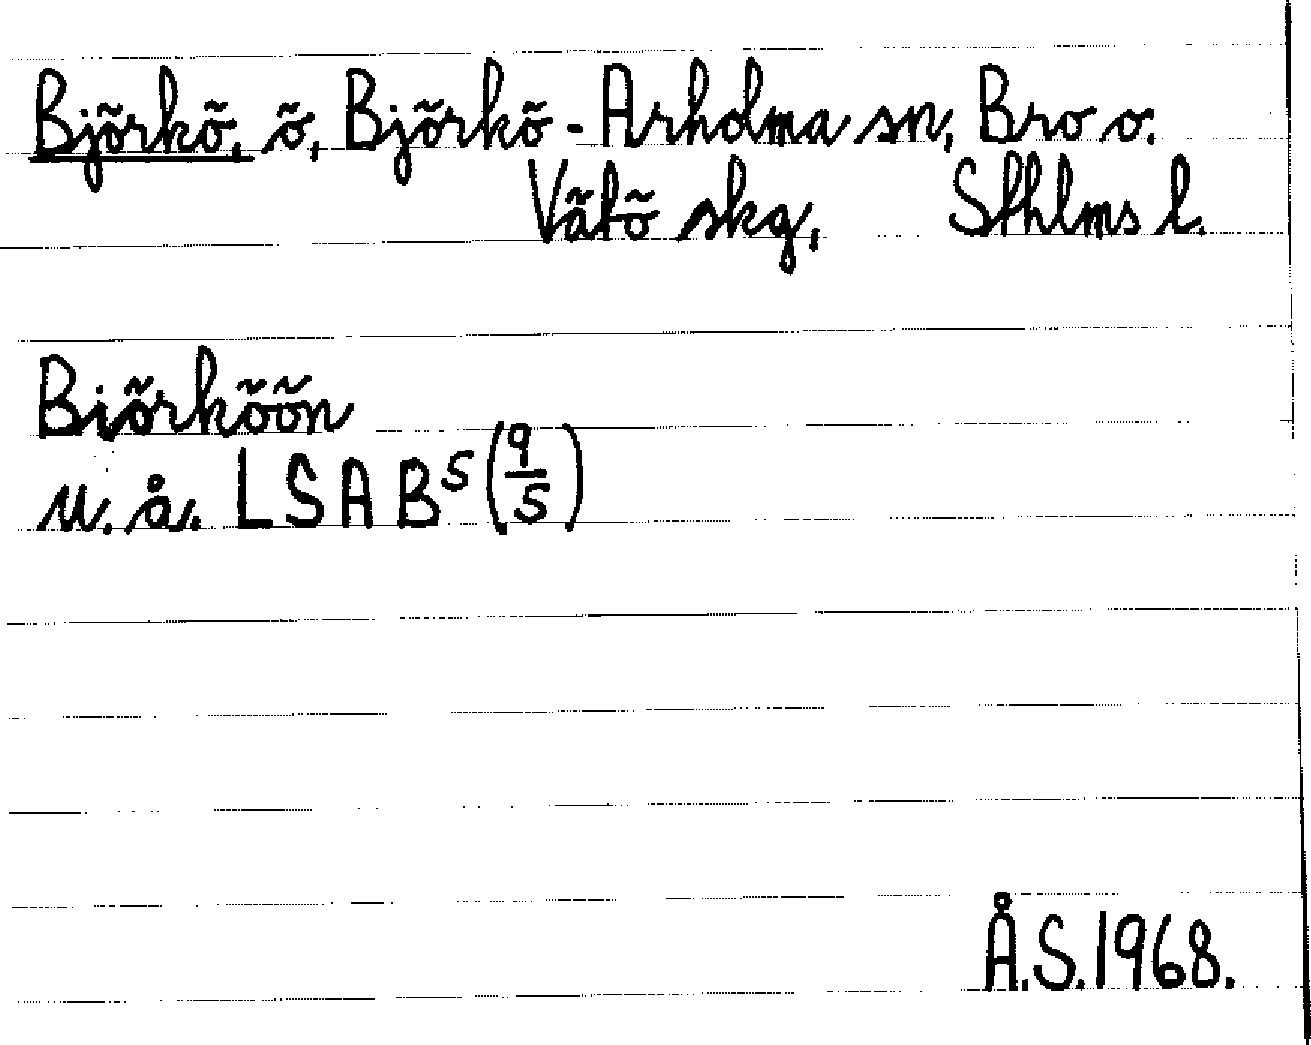 Björkö, ö, Björkö-Arholma sn, Bro o.
Vätö skg, Sthlms l.
Biörköön
u. å. LSA B⁵ (9/5)
Å.S. 1968.